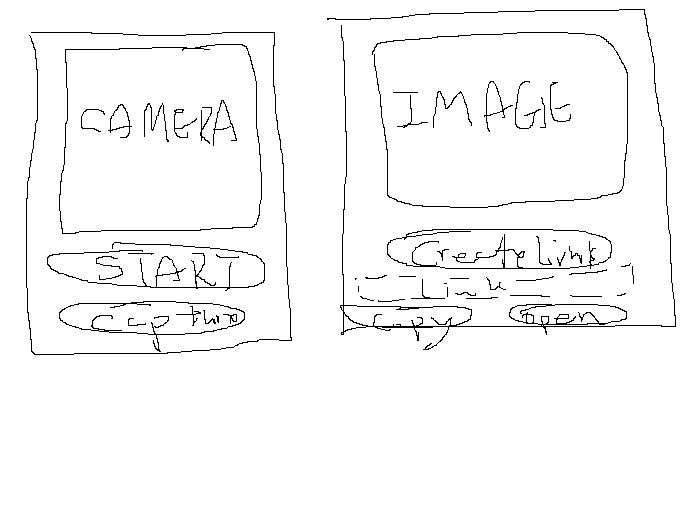 CAMERA
START
capture
IMAGE
Create link
Link
Copy
open